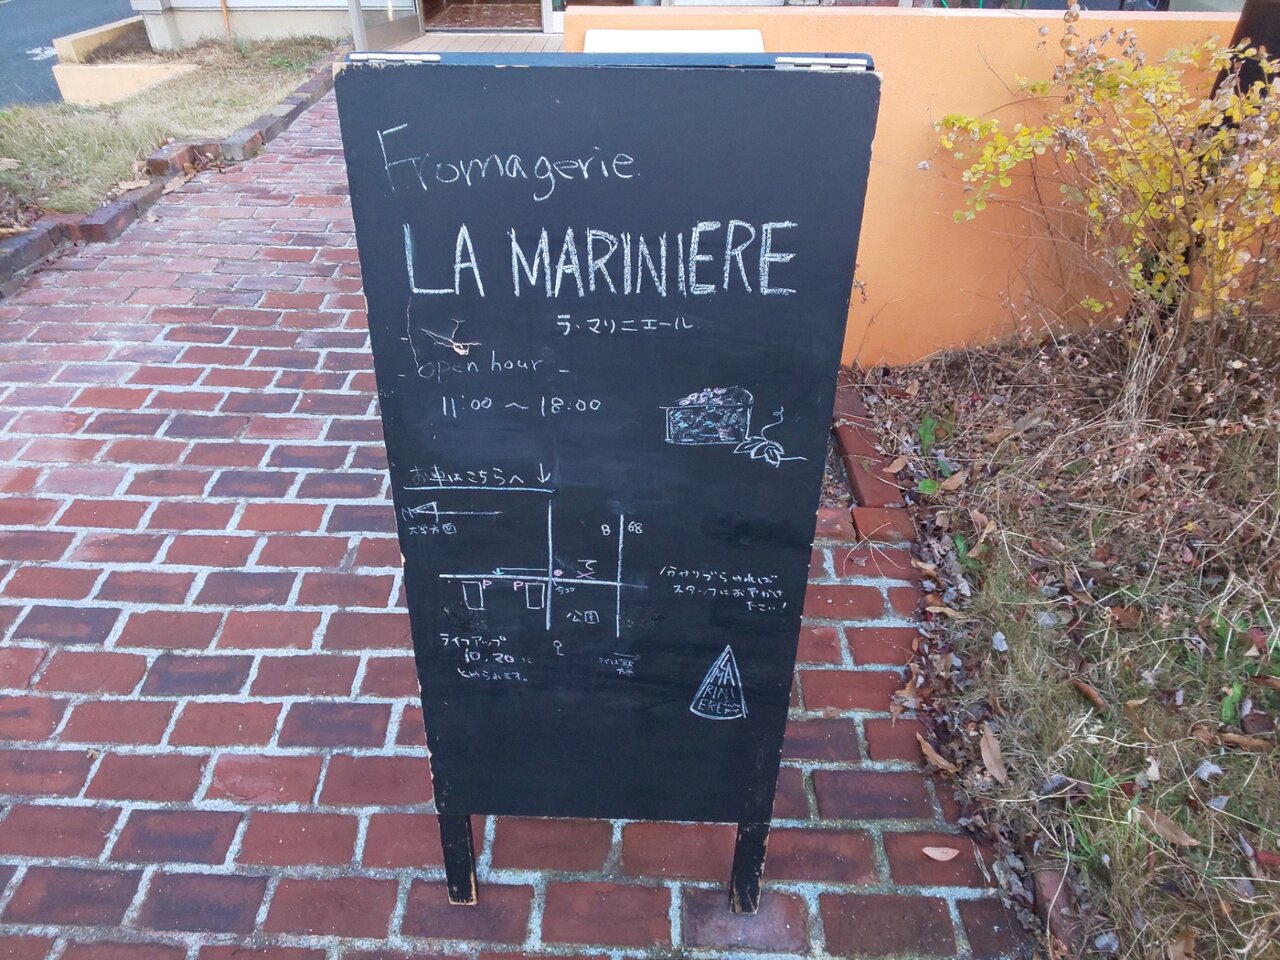 Fromagerie
LA MARINIERE
ラ・マリニエール
- open hour -
11:00 ～ 18:00
お車はこちらへ ↓
N
大学方面
B 68
P P
公園
分かりづらければ
スタッフにお声がけ
下さい!
ライフアップ
10, 20 に
とめられます。
つくば駅
方面
LA
MA
RINI
ERE